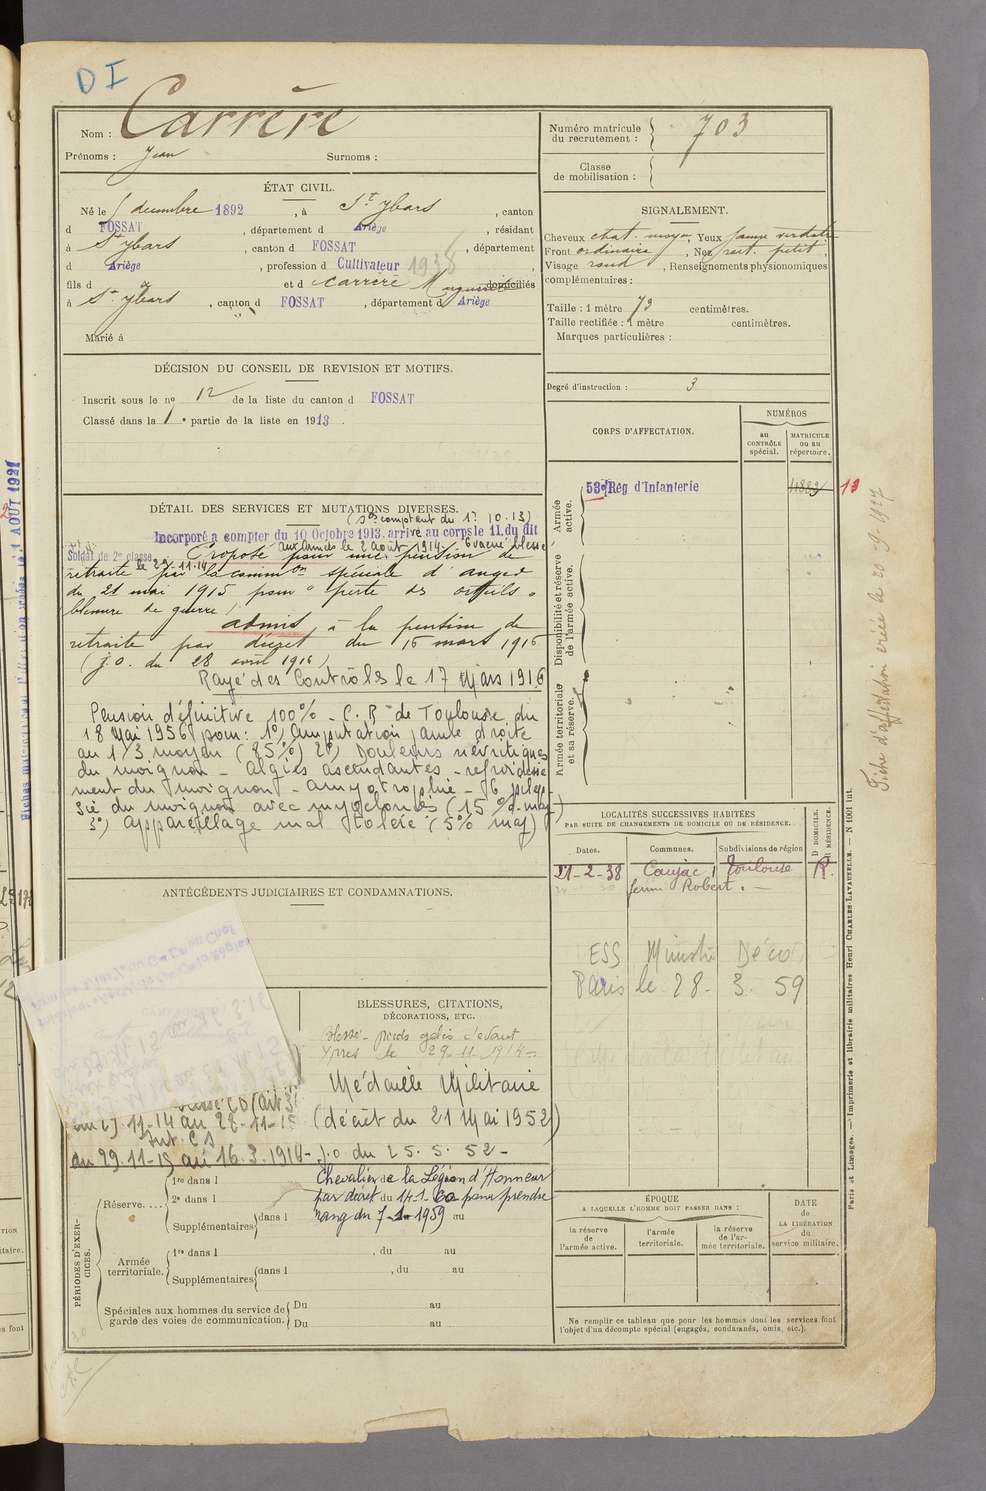 D I
Nom : Carrère
Prénoms : Jean Surnoms :
ÉTAT CIVIL.
Né le décembre 1892, à St Ybars, canton
d FOSSAT, département d Ariège, résidant
à St Ybars, canton d FOSSAT, département
d Ariège, profession d Cultivateur 1938
fils d et d Carrère Marguerite domiciliés
à St Ybars, canton d FOSSAT, département d Ariège
Marié à
DÉCISION DU CONSEIL DE REVISION ET MOTIFS.
Inscrit sous le no 12 de la liste du canton d FOSSAT
Classé dans la 1e partie de la liste en 1913.
DÉTAIL DES SERVICES ET MUTATIONS DIVERSES.
(Sce comptant du 1er 10.13)
Incorporé a compter du 10 Octobre 1913. arrivé au corps le 11. du dit
Soldat de 2e classe aux Armées le 2 août 1914. Evacué blessé
le 29-11-14 Proposé pour une pension de
retraite par la common spéciale d'
du 21 mai 1915 pour "perte des orteils"
blessure de guerre
admis à la pension de
retraite par décret du 15 mars 1916
(j.o. du 28 avril 1916)
Rayé des Contrôles le 17 Mars 1916
Pension définitive 100% - C.R de Toulouse du
18 Mai 1956 pour : 1°) Amputation jambe droite
au 1/3 moyen (85%) 2°) Douleurs névritiques
du moignon - algies ascendantes - refroidisse
ment du moignon - amyotrophie -
du moignon avec myoclonies (15% maj)
3°) appareillage mal toléré (5% maj)
ANTÉCÉDENTS JUDICIAIRES ET CONDAMNATIONS.
BLESSURES, CITATIONS,
DÉCORATIONS, ETC.
Blessé - pieds gelés devant
Ypres le 29-11-1914
Médaille Militaire
(décret du 21 Mai 1952)
j.o du 25. 5. 52 -
Chevalier de la Légion d'Honneur
par décret du 14.1. 60 pour prendre
rang du 1959
11-14 au 28-11-15
Int. CS
du 29.11-15 au 16.3.1916
PÉRIODES D'EXERCICES.
Réserve.... 1re dans l
2e dans l
Supplémentaires dans l au
Armée territoriale. 1re dans l , du au
Supplémentaires dans l , du au
Spéciales aux hommes du service de garde des voies de communication. Du au
Du au
Numéro matricule du recrutement : 703
Classe de mobilisation :
SIGNALEMENT.
Cheveux chat. moyen, Yeux jaune verdâtre
Front ordinaire, Nez rect. petit,
Visage rond, Renseignements physionomiques
complémentaires :
Taille : 1 mètre 73 centimètres.
Taille rectifiée : 1 mètre centimètres.
Marques particulières :
Degré d'instruction : 3
CORPS D'AFFECTATION.
NUMÉROS
au CONTRÔLE spécial.
MATRICULE ou au répertoire.
Armée active.
53e Rég d'Infanterie
Disponibilité et réserve de l'armée active.
Armée territoriale et sa réserve.
LOCALITÉS SUCCESSIVES HABITÉES
PAR SUITE DE CHANGEMENTS DE DOMICILE OU DE RÉSIDENCE.
D DOMICILE. R RÉSIDENCE.
Dates. Communes. Subdivisions de région
21-2-38 Caujac Toulouse R.
ferme Robert. -
ESS Ministre Déco
Paris le 28- 3. 59
ÉPOQUE
A LAQUELLE L'HOMME DOIT PASSER DANS :
la réserve de l'armée active.
l'armée territoriale.
la réserve de l'armée territoriale.
DATE de LA LIBÉRATION du service militaire.
Ne remplir ce tableau que pour les hommes dont les services font
l'objet d'un décompte spécial (engagés, condamnés, omis, etc.).
Paris et Limoges. — Imprimerie et librairie militaires Henri CHARLES-LAVAUZELLE. — N 1001 int.
Fiche d'affectation créée le 20-9-1927